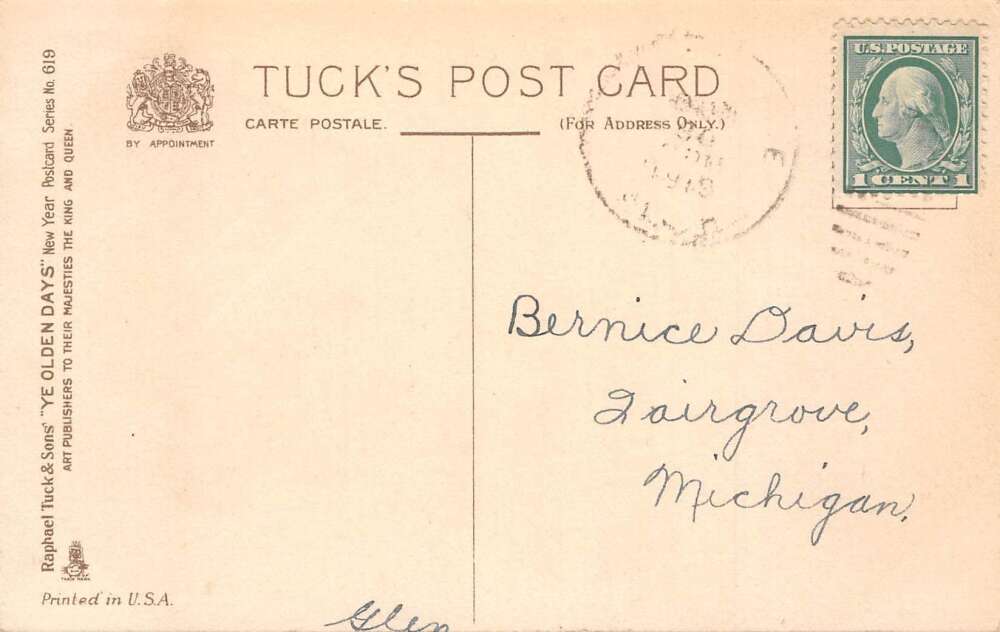 TUCK'S POST CARD
CARTE POSTALE.
(FOR ADDRESS ONLY.)
BY APPOINTMENT
U.S. POSTAGE
1 CENT 1
Raphael Tuck & Sons' "YE OLDEN DAYS" New Year Postcard Series No. 619
ART PUBLISHERS TO THEIR MAJESTIES THE KING AND QUEEN.
Bernice Davis,
Fairgrove,
Michigan.
TRADE MARK
Printed in U.S.A.
Glen